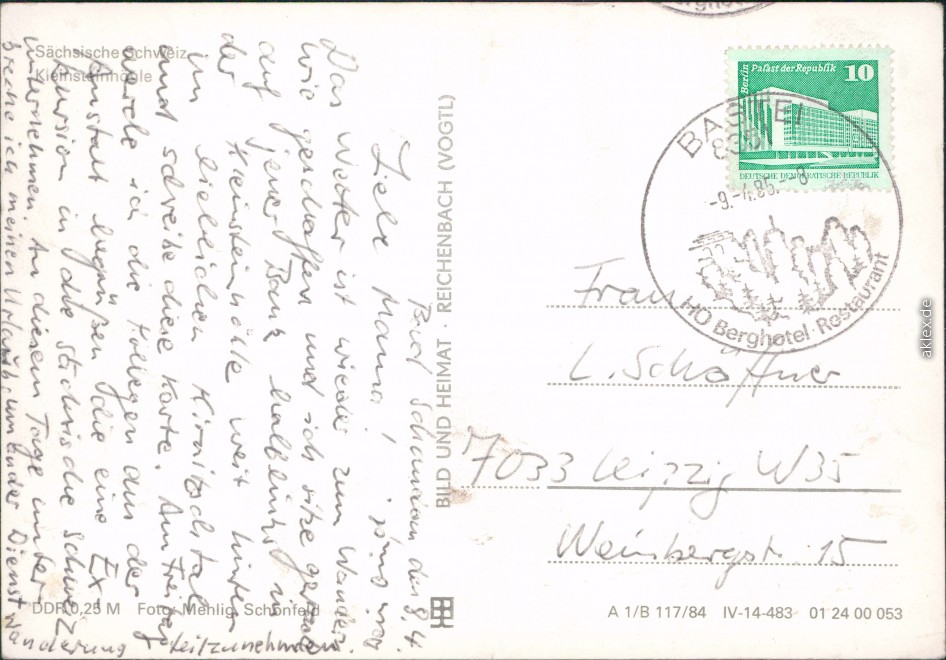 Sächsische Schweiz
Kleinsteinhöhle
Bad Schandau den 8.4.
Liebe Mama!
Das Wetter ist wieder zum Wandern
wie geschaffen und ich sitze gerade
auf jener Bank halblinks in
der Kleinsteinhöhle weit hinten
im lieblichen Kirnitzschtal
und schreibe diese Karte. Am Freitag
werde ich die Kollegen aus der
Anstalt begrüßen die eine Ex
kursion in die Sächsische Schweiz
unternehmen. An diesem Tage unter
breche ich meinen Urlaub, um an der Dienst
wanderung teilzunehmen
DDR 0,25 M Foto: Mehlig, Schönfeld
BILD UND HEIMAT · REICHENBACH (VOGTL)
Berlin Palast der Republik 10
DEUTSCHE DEMOKRATISCHE REPUBLIK
BASTEI
-9.-4.86.--8
HO Berghotel · Restaurant
Frau
L. Schöffner
7033 Leipzig W35
Weinbergstr. 15
A 1/B 117/84 IV-14-483 01 24 00 053
aklex.de